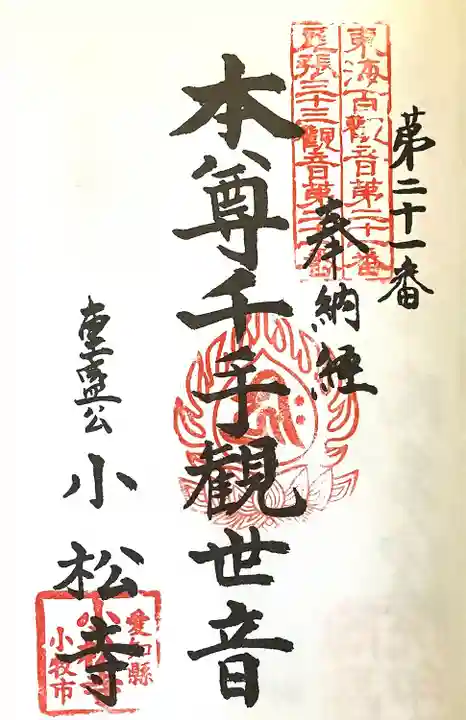 第二十一番
東海百観音第二十一番
尾張三十三観音第二十一番
奉納経
本尊千手観世音
重盛公
小松寺
愛知縣
小牧市